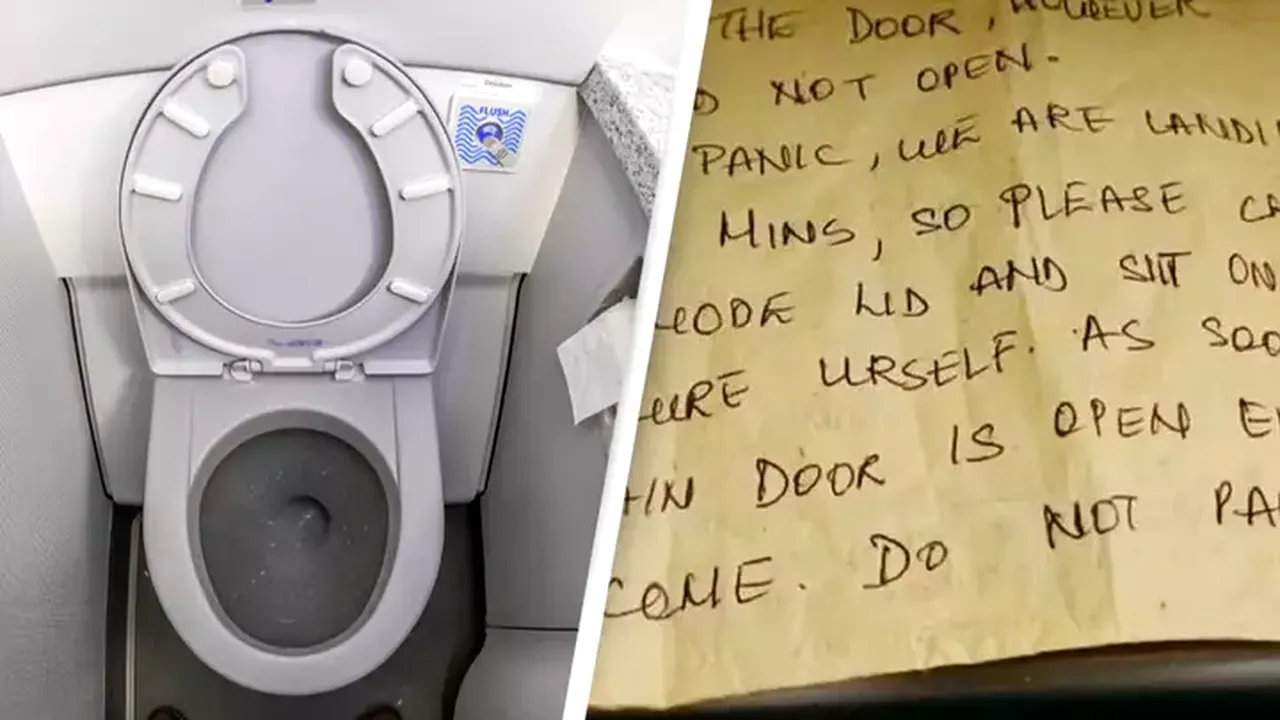 FLUSH
THE DOOR, HOWEVER
NOT OPEN.
PANIC, WE ARE LANDI
MINS, SO PLEASE
LID AND SIT ON
URSELF. AS SOO
DOOR IS OPEN
COME. DO NOT PA